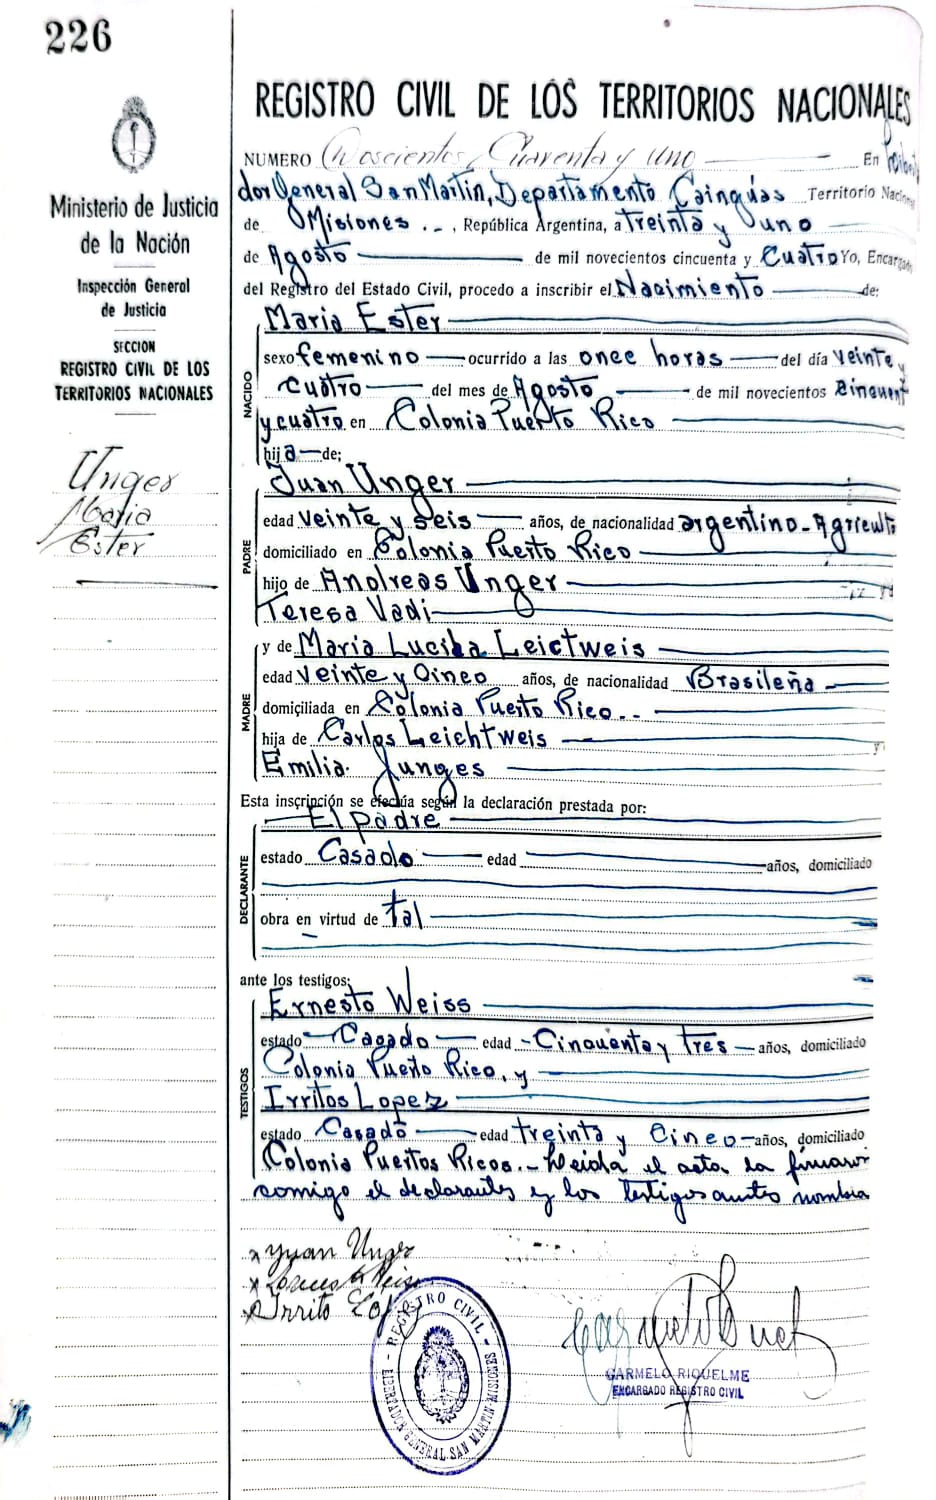 226
Ministerio de Justicia
de la Nación
Inspección General
de Justicia
SECCION
REGISTRO CIVIL DE LOS
TERRITORIOS NACIONALES
Unger
Maria
Ester
REGISTRO CIVIL DE LOS TERRITORIOS NACIONALES
NUMERO Doscientos Cuarenta y Uno En
dor General San Martin, Departamento Cainguás Territorio Nacional
de Misiones . . , República Argentina, a Treinta y uno
de Agosto de mil novecientos cincuenta y Cuatro Yo, Encargado
del Registro del Estado Civil, procedo a inscribir el Nacimiento de:
NACIDO
Maria Ester
sexo femenino ocurrido a las once horas del día veinte y
cuatro del mes de Agosto de mil novecientos Cincuent
y cuatro en Colonia Puerto Rico
hij a de;
PADRE
Juan Unger
edad veinte y seis años, de nacionalidad argentino - Agricult
domiciliado en Colonia Puerto Rico
hijo de Andreas Unger
Teresa Vadi
MADRE
y de Maria Lucida Leictweis
edad veinte y Cinco años, de nacionalidad Brasileña
domiciliada en Colonia Puerto Rico . .
hija de Carlos Leichtweis y
Emilia Junges
Esta inscripción se efectúa según la declaración prestada por:
DECLARANTE
El padre
estado Casado edad años, domiciliado
obra en virtud de tal
ante los testigos:
TESTIGOS
Ernesto Weiss
estado Casado edad Cincuenta y Tres años, domiciliado
Colonia Puerto Rico, y
Irritos Lopez
estado Casado edad treinta y Cinco años, domiciliado
Colonia Puertos Ricos. - Leida el acta la firmaron
comigo el declarantes y los testigos antes nombra
x Yuan Unger
x Weis
x Irrito Lopez
REGISTRO CIVIL
LIBERTADOR GENERAL SAN MARTIN-MISIONES
CARMELO RIQUELME
ENCARGADO REGISTRO CIVIL